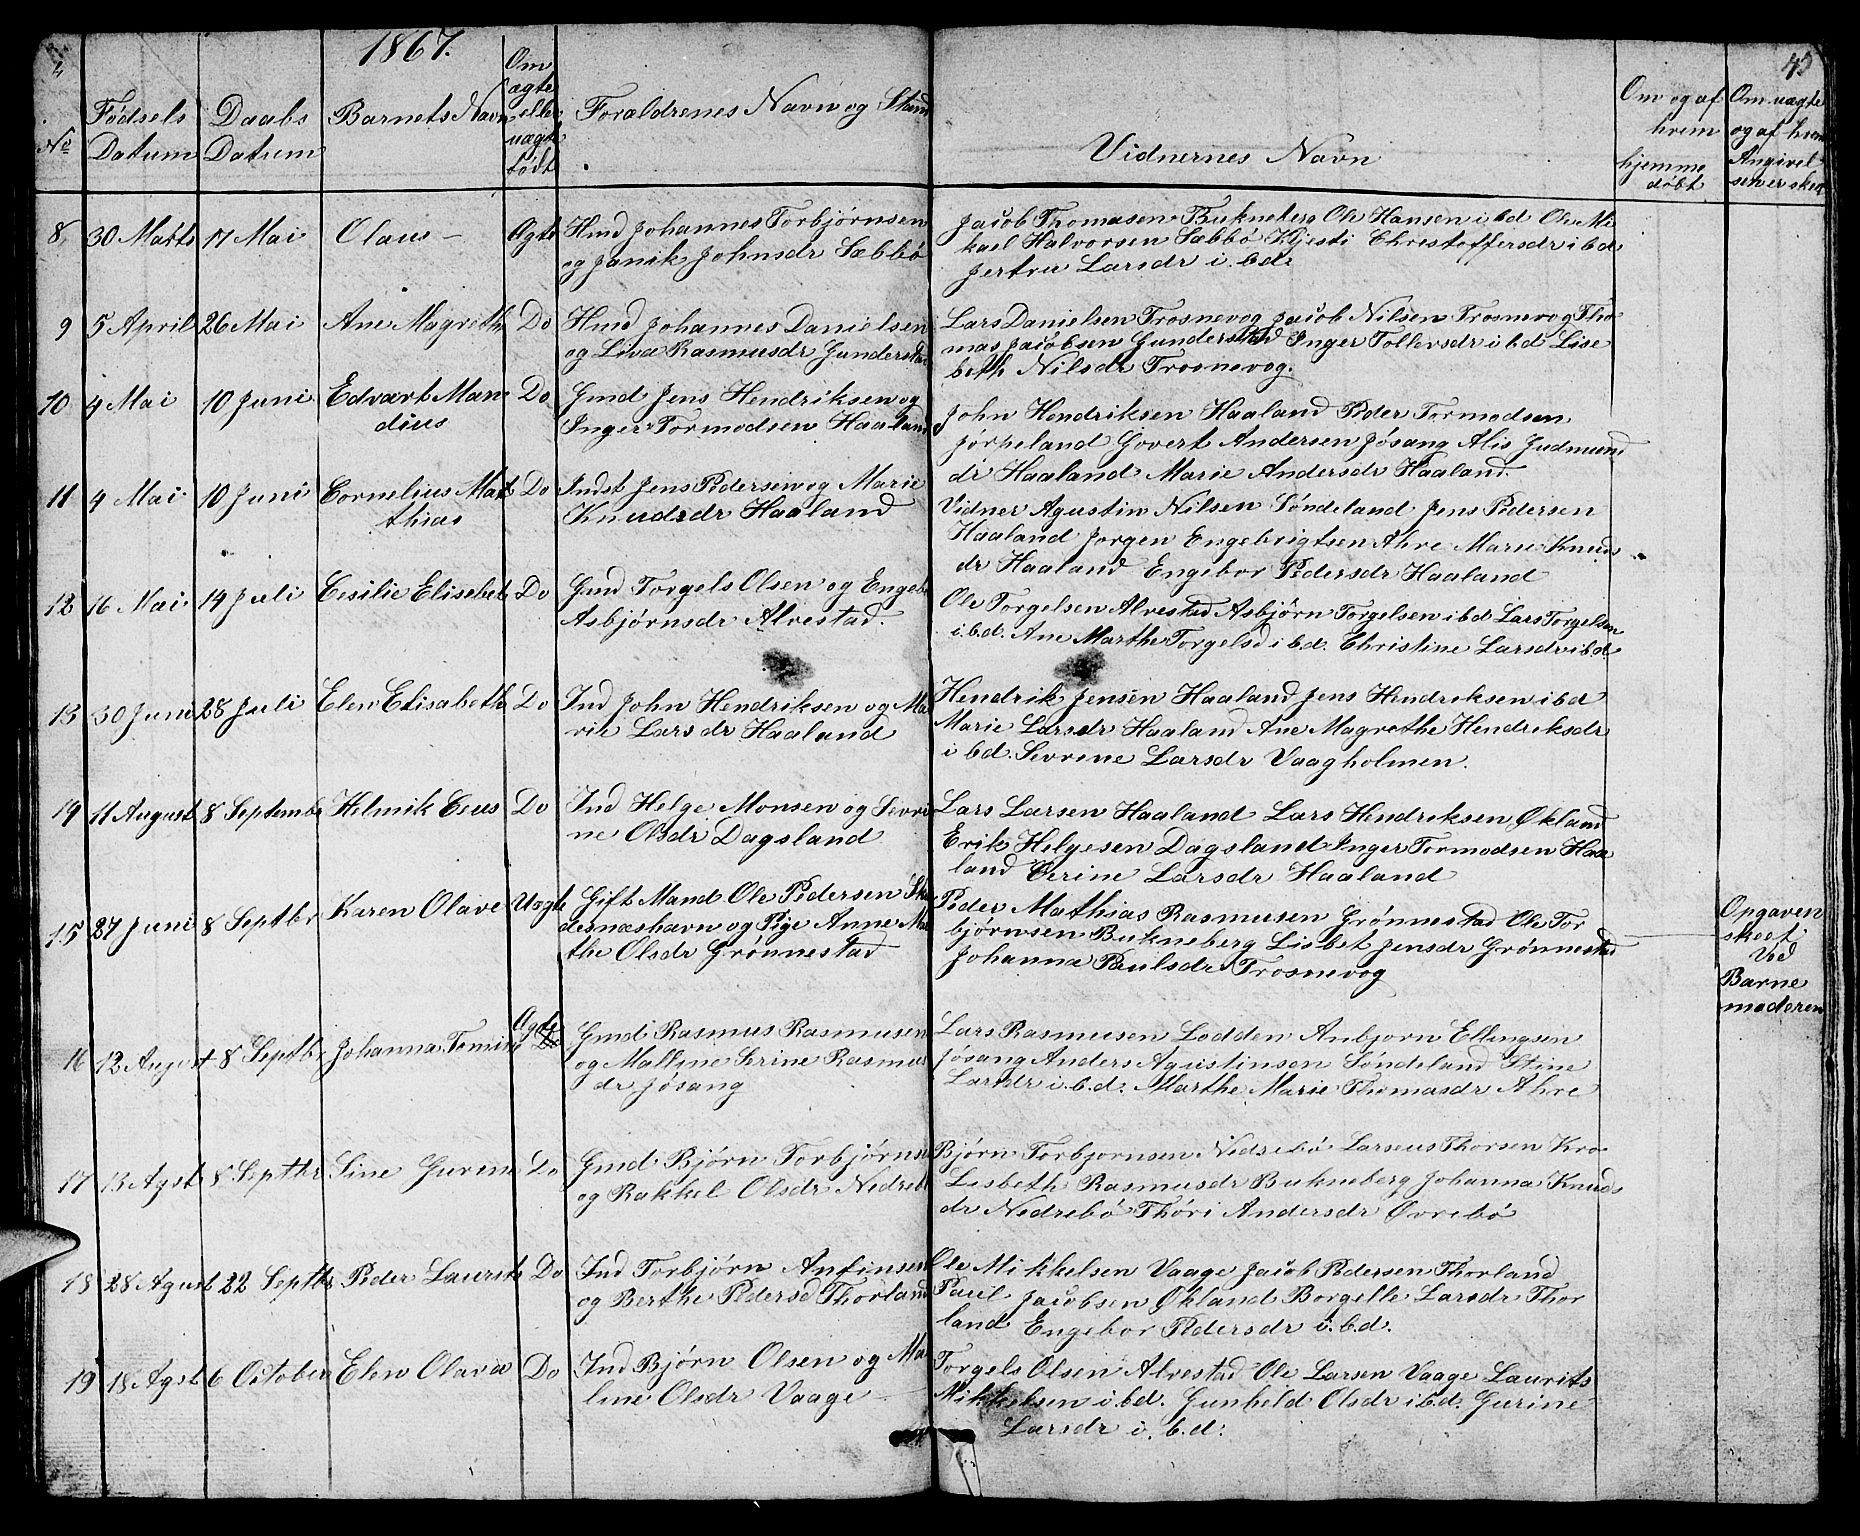 1867.
45
No
Fødsels Datum
Daabs Datum
Barnets Navn
Om ægte eller uægte født
Forældrenes Navn og Stand
Vidnernes Navn
Om og af hvem hjemme døbt
Om uægte og af hvem Angivelsen er skeet
8 30 Marts 17 Mai Olaus – Ægte Hmd Johannes Torbjørnsen
og Janik Johnsdr Sæbbö
Jacob Thomasen Bukneberg Ole Hansen i bd Ole Mi
kael Halvorsen Sæbbö Kjesti Chrestoffersdr i bd
Jertru Larsdr i. bd:
9 5 April 26 Mai Ane Magrethe Do Hmd Johannes Danielsen
og Liva Rasmusdr Gunderstad
Lars Danielsen Trosnevog Jacob Nilsen Trosnevog Tho
mas Jacobsen Gunderstad Inger Tollevsdr i bd Lise
beth Nilsdr Trosnevog.
10 4 Mai 10 Juni Edvart Man
dius
Do Gmd Jens Hendriksen og
Inger Tormodsen Haaland
John Hendriksen Haaland Peder Tormodsen
Jörpeland Govert Andersen Jösang Alis Judmund
dr Haaland Marie Andersdr Haaland
11 4 Mai 10 Juni Cornelius Mat
thias
Do Indst Jens Pedersen og Marie
Knudsdr Haaland
Vidner Agustin Nilsen Söndeland Jens Pedersen
Haaland Jorgen Engebrigtsen Ahre Marie Knuds
dr Haaland Engebor Pedersdr Haaland
12 16 Mai 14 Juli Cesilie Elisebet Do Gmd Torgels Olsen og Engeb
Asbjørnsdr Alvestad.
Ole Torgelsen Alvestad Asbjörn Torgelsen i bd Lars Torgelsen
i. b.d. Ane Marthe Torgelsd i bd. Christine Larsdr i bd.
13 30 Juni 28 Juli Elen Elisabeth Do Ind John Hendriksen og Ma
rie Larsdr Haaland
Hendrik Jensen Haaland Jens Hendreksen i bd
Marie Larsdr Haaland Ane Magrethe Hendriksdr
i bd. Sevrene Larsdr Vaagholmen.
14 11 August 8 Septembr Helmik Do Ind Helge Monsen og Sevri
ne Olsdr Dagsland
Lars Larsen Haaland Lars Hendriksen Økland
Erik Helgesen Dagsland Inger Tormodsen Haa
land Verine Larsdr Haaland
15 27 Juni 8 Septbr Karen Olave Uægte Gift Mand Ole Pedersen Sku
desnæshavn og Pige Anne Mar
the Olsdr Grönnestad
Peder Mathias Rasmusen Grönnestad Ole Tor
björnsen Bukneberg Lisbet Jensdr Grönnestad
Johanna Paulsdr Trosnevog
Opgaven
skeet
Ved
Barne
moderen
16 12 August 8 Septbr Johanna Tomine Ægte Gmd Rasmus Rasmusen
og Mallene Serine Rasmus
dr Jösang
Lars Rasmusen Lodden Anbjorn Ellingsen
Jösang Anders Agustinsen Söndeland Stine
Larsdr i. b.d: Marthe Marie Thomasdr Ahre
17 13 Agst 8 Septbr Sine Gurine Do Gmd Bjørn Torbjörnsen
og Rakkel Olsdr Nedrebö
Bjørn Torbjornsen Nedrebö Larseus Thorsen Kro
Lisbeth Rasmusdr Bukneberg Johanna Knuds
dr Nedrebö Thöri Andersdr Øvrebö
18 28 Agust 22 Septbr Peder Laurits Do Ind Torbjörn Anfinsen
og Berthe Pedersd Thorland
Ole Mikkelsen Vaage Jacob Pedersen Thorland
Paul Jacobsen Økland Borgelle Larsdr Thor
land Engebor Pedersdr i. b.d.
19 18 Agst 6 October Elen Olava Do Ind Bjørn Olsen og Ma
line Olsdr Vaage –
Torgels Olsen Alvestad Ole Larsen Vaage Laurits
Mikkelsen i bd. Gunheld Olsdr i bd. Gurine
Larsdr i. b.d: